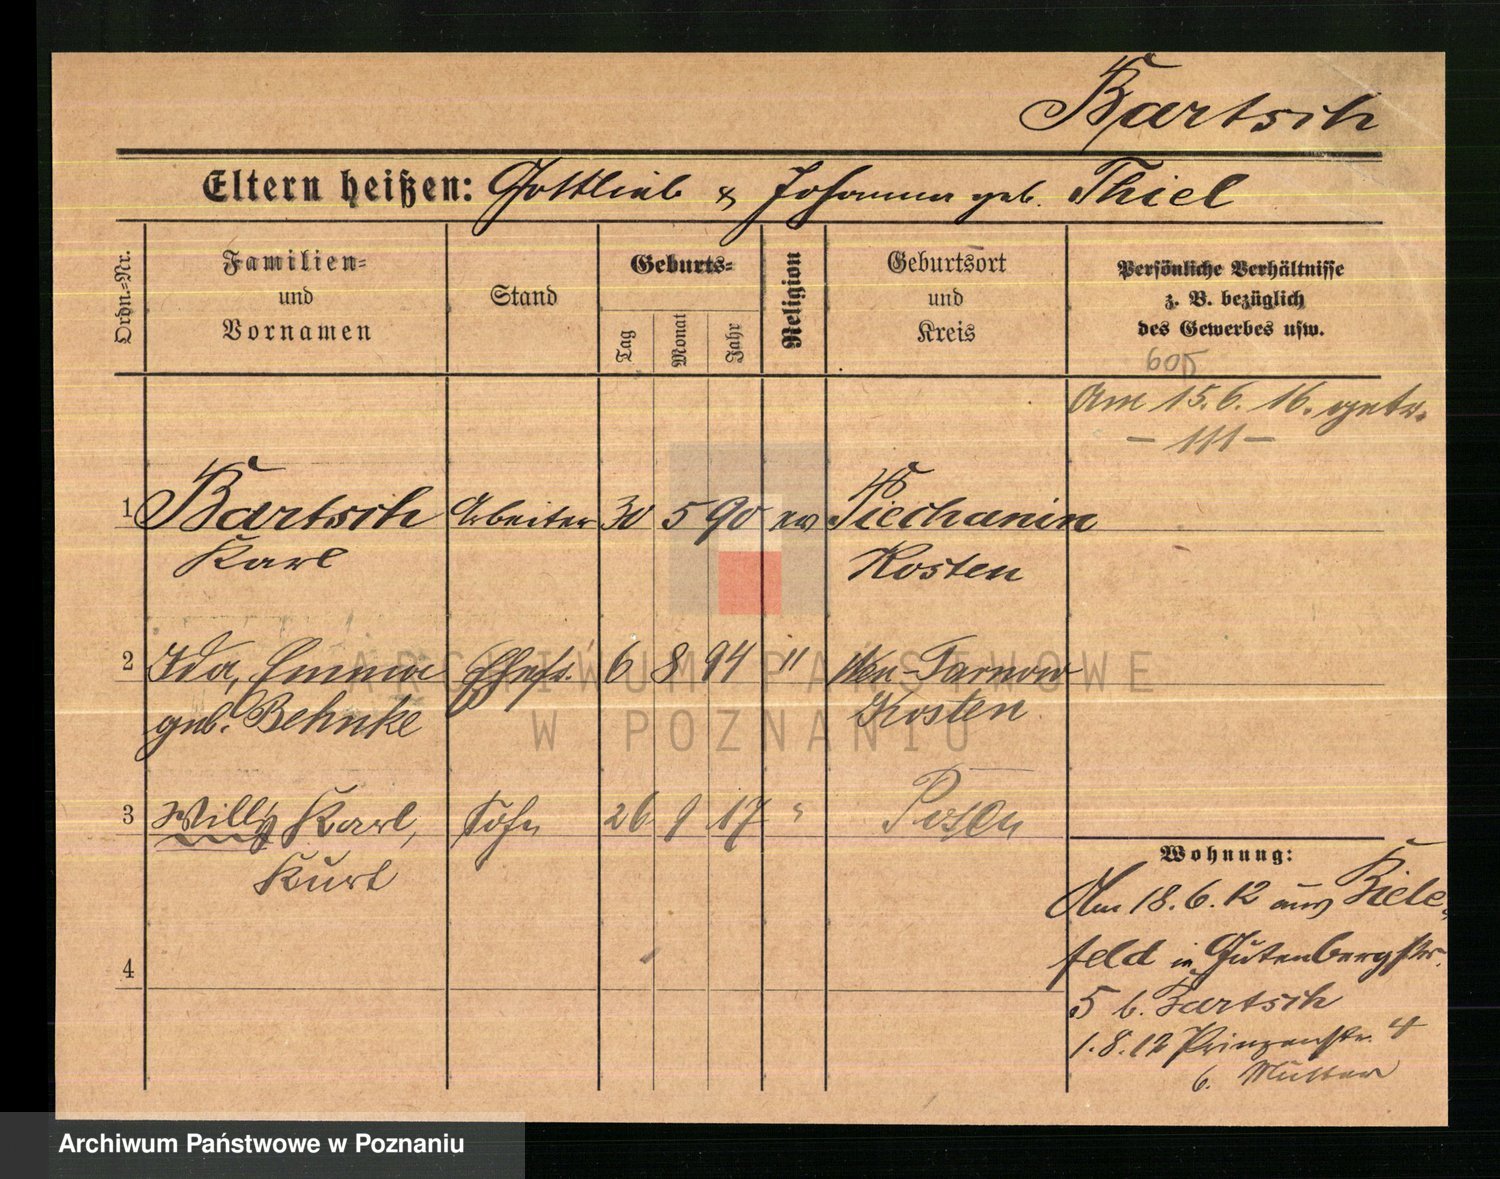 Bartsch
Eltern heißen: Gottlieb & Johanna geb. Thiel
Ordn.-Nr.
Familien- und Vornamen
Stand
Geburts-
Tag
Monat
Jahr
Religion
Geburtsort und Kreis
Persönliche Verhältnisse
z. B. bezüglich
des Gewerbes usw.
Am 15. 6. 16. getr.
1 Bartsch Arbeiter 30 5 90 ev Piechanin
Karl Kosten
2 Ida, Emma Ehefr. 6 8 94 " Neu-Tarnow
geb. Behnke Kosten
3 Willy Karl, Sohn 26 9 17 " Posen
Kurt
4
Wohnung:
Am 18. 6. 12 aus Biele-
feld in Gutenbergstr.
5 b. Bartsch
1. 8. 12 Prinzenstr. 4
b. Mutter
ARCHIWUM PAŃSTWOWE
W POZNANIU
Archiwum Państwowe w Poznaniu